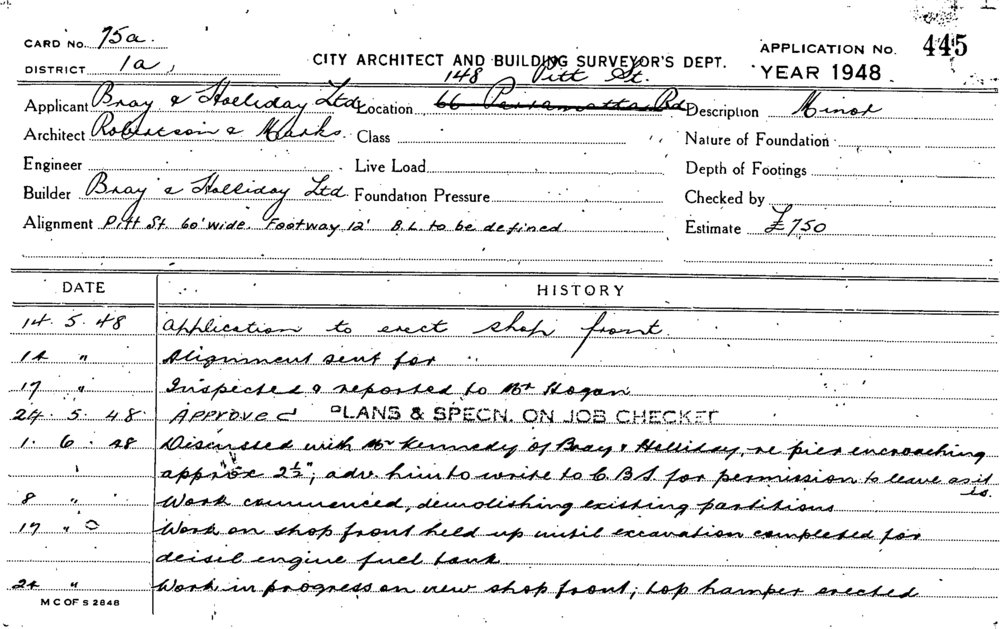 CARD No. 75a.
DISTRICT 1a,
CITY ARCHITECT AND BUILDING SURVEYOR'S DEPT.
APPLICATION No. 445
YEAR 1948
148 Pitt St.
Applicant Bray & Holliday Ltd Location 66 Parramatta Rd Description Minor
Architect Robertson & Marks. Class Nature of Foundation
Engineer Live Load Depth of Footings
Builder Bray & Holliday Ltd Foundation Pressure Checked by
Alignment Pitt St. 60' wide. Footway 12' B.L. to be defined Estimate £750
DATE HISTORY
14. 5. 48 Application to erect shop front.
14 " Alignment sent for
17 " Inspected & reported to Mr Hogan
24. 5. 48 APPROVED PLANS & SPECN. ON JOB CHECKED
1. 6. 48 Discussed with Mr Kennedy of Bray & Holliday, re pier encroaching
" approx 2½"; adv. him to write to C.B.S. for permission to leave as it is.
8 " Work commenced, demolishing existing partitions
17 " Work on shop front held up until excavation completed for
deisel engine fuel tank
24 " Work in progress on new shop front; top hamper erected
M C OF S 2848